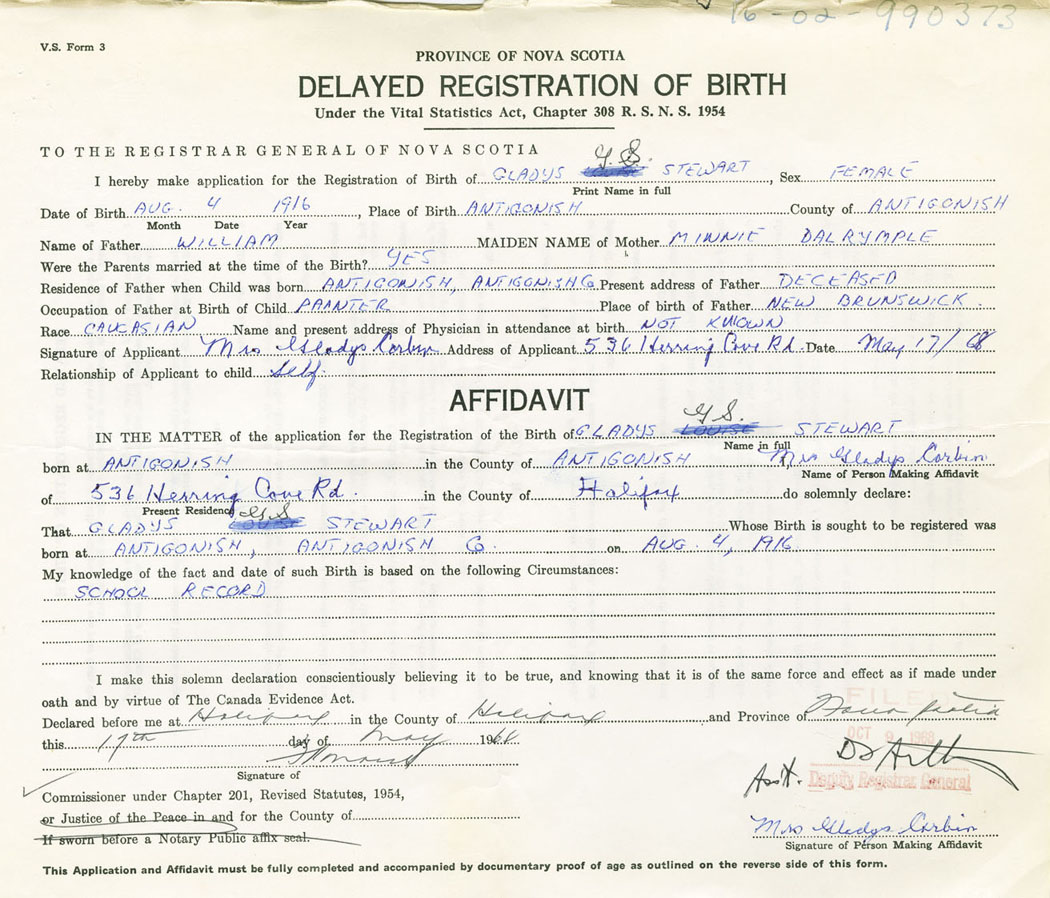 16-02-990373
V.S. Form 3
PROVINCE OF NOVA SCOTIA
DELAYED REGISTRATION OF BIRTH
Under the Vital Statistics Act, Chapter 308 R. S. N. S. 1954
TO THE REGISTRAR GENERAL OF NOVA SCOTIA
G.S.
I hereby make application for the Registration of Birth of GLADYS LOUISE STEWART, Sex FEMALE
Print Name in full
Date of Birth AUG. 4 1916, Place of Birth ANTIGONISH County of ANTIGONISH
Month Date Year
Name of Father WILLIAM MAIDEN NAME of Mother MINNIE DALRYMPLE
Were the Parents married at the time of the Birth? YES
Residence of Father when Child was born ANTIGONISH, ANTIGONISH Co. Present address of Father DECEASED
Occupation of Father at Birth of Child PAINTER Place of birth of Father NEW BRUNSWICK.
Race CAUCASIAN Name and present address of Physician in attendance at birth NOT KNOWN
Signature of Applicant Mrs Gladys Corbin Address of Applicant 536 Herring Cove Rd. Date May 17/68
Relationship of Applicant to child Self.
AFFIDAVIT
G.S.
IN THE MATTER of the application for the Registration of the Birth of GLADYS LOUISE STEWART
Name in full
born at ANTIGONISH in the County of ANTIGONISH Mrs Gladys Corbin
Name of Person Making Affidavit
of 536 Herring Cove Rd. in the County of Halifax do solemnly declare:
Present Residence GS
That GLADYS LOUISE STEWART Whose Birth is sought to be registered was
born at ANTIGONISH, ANTIGONISH Co. on AUG. 4, 1916
My knowledge of the fact and date of such Birth is based on the following Circumstances:
SCHOOL RECORD
I make this solemn declaration conscientiously believing it to be true, and knowing that it is of the same force and effect as if made under
oath and by virtue of The Canada Evidence Act.
FILED
Declared before me at Halifax in the County of Halifax and Province of Nova Scotia
this 17th day of May 1968
OCT 9 1968
Signature of
Asst. Deputy Registrar General
Commissioner under Chapter 201, Revised Statutes, 1954,
or Justice of the Peace in and for the County of
If sworn before a Notary Public affix seal.
Mrs Gladys Corbin
Signature of Person Making Affidavit
This Application and Affidavit must be fully completed and accompanied by documentary proof of age as outlined on the reverse side of this form.